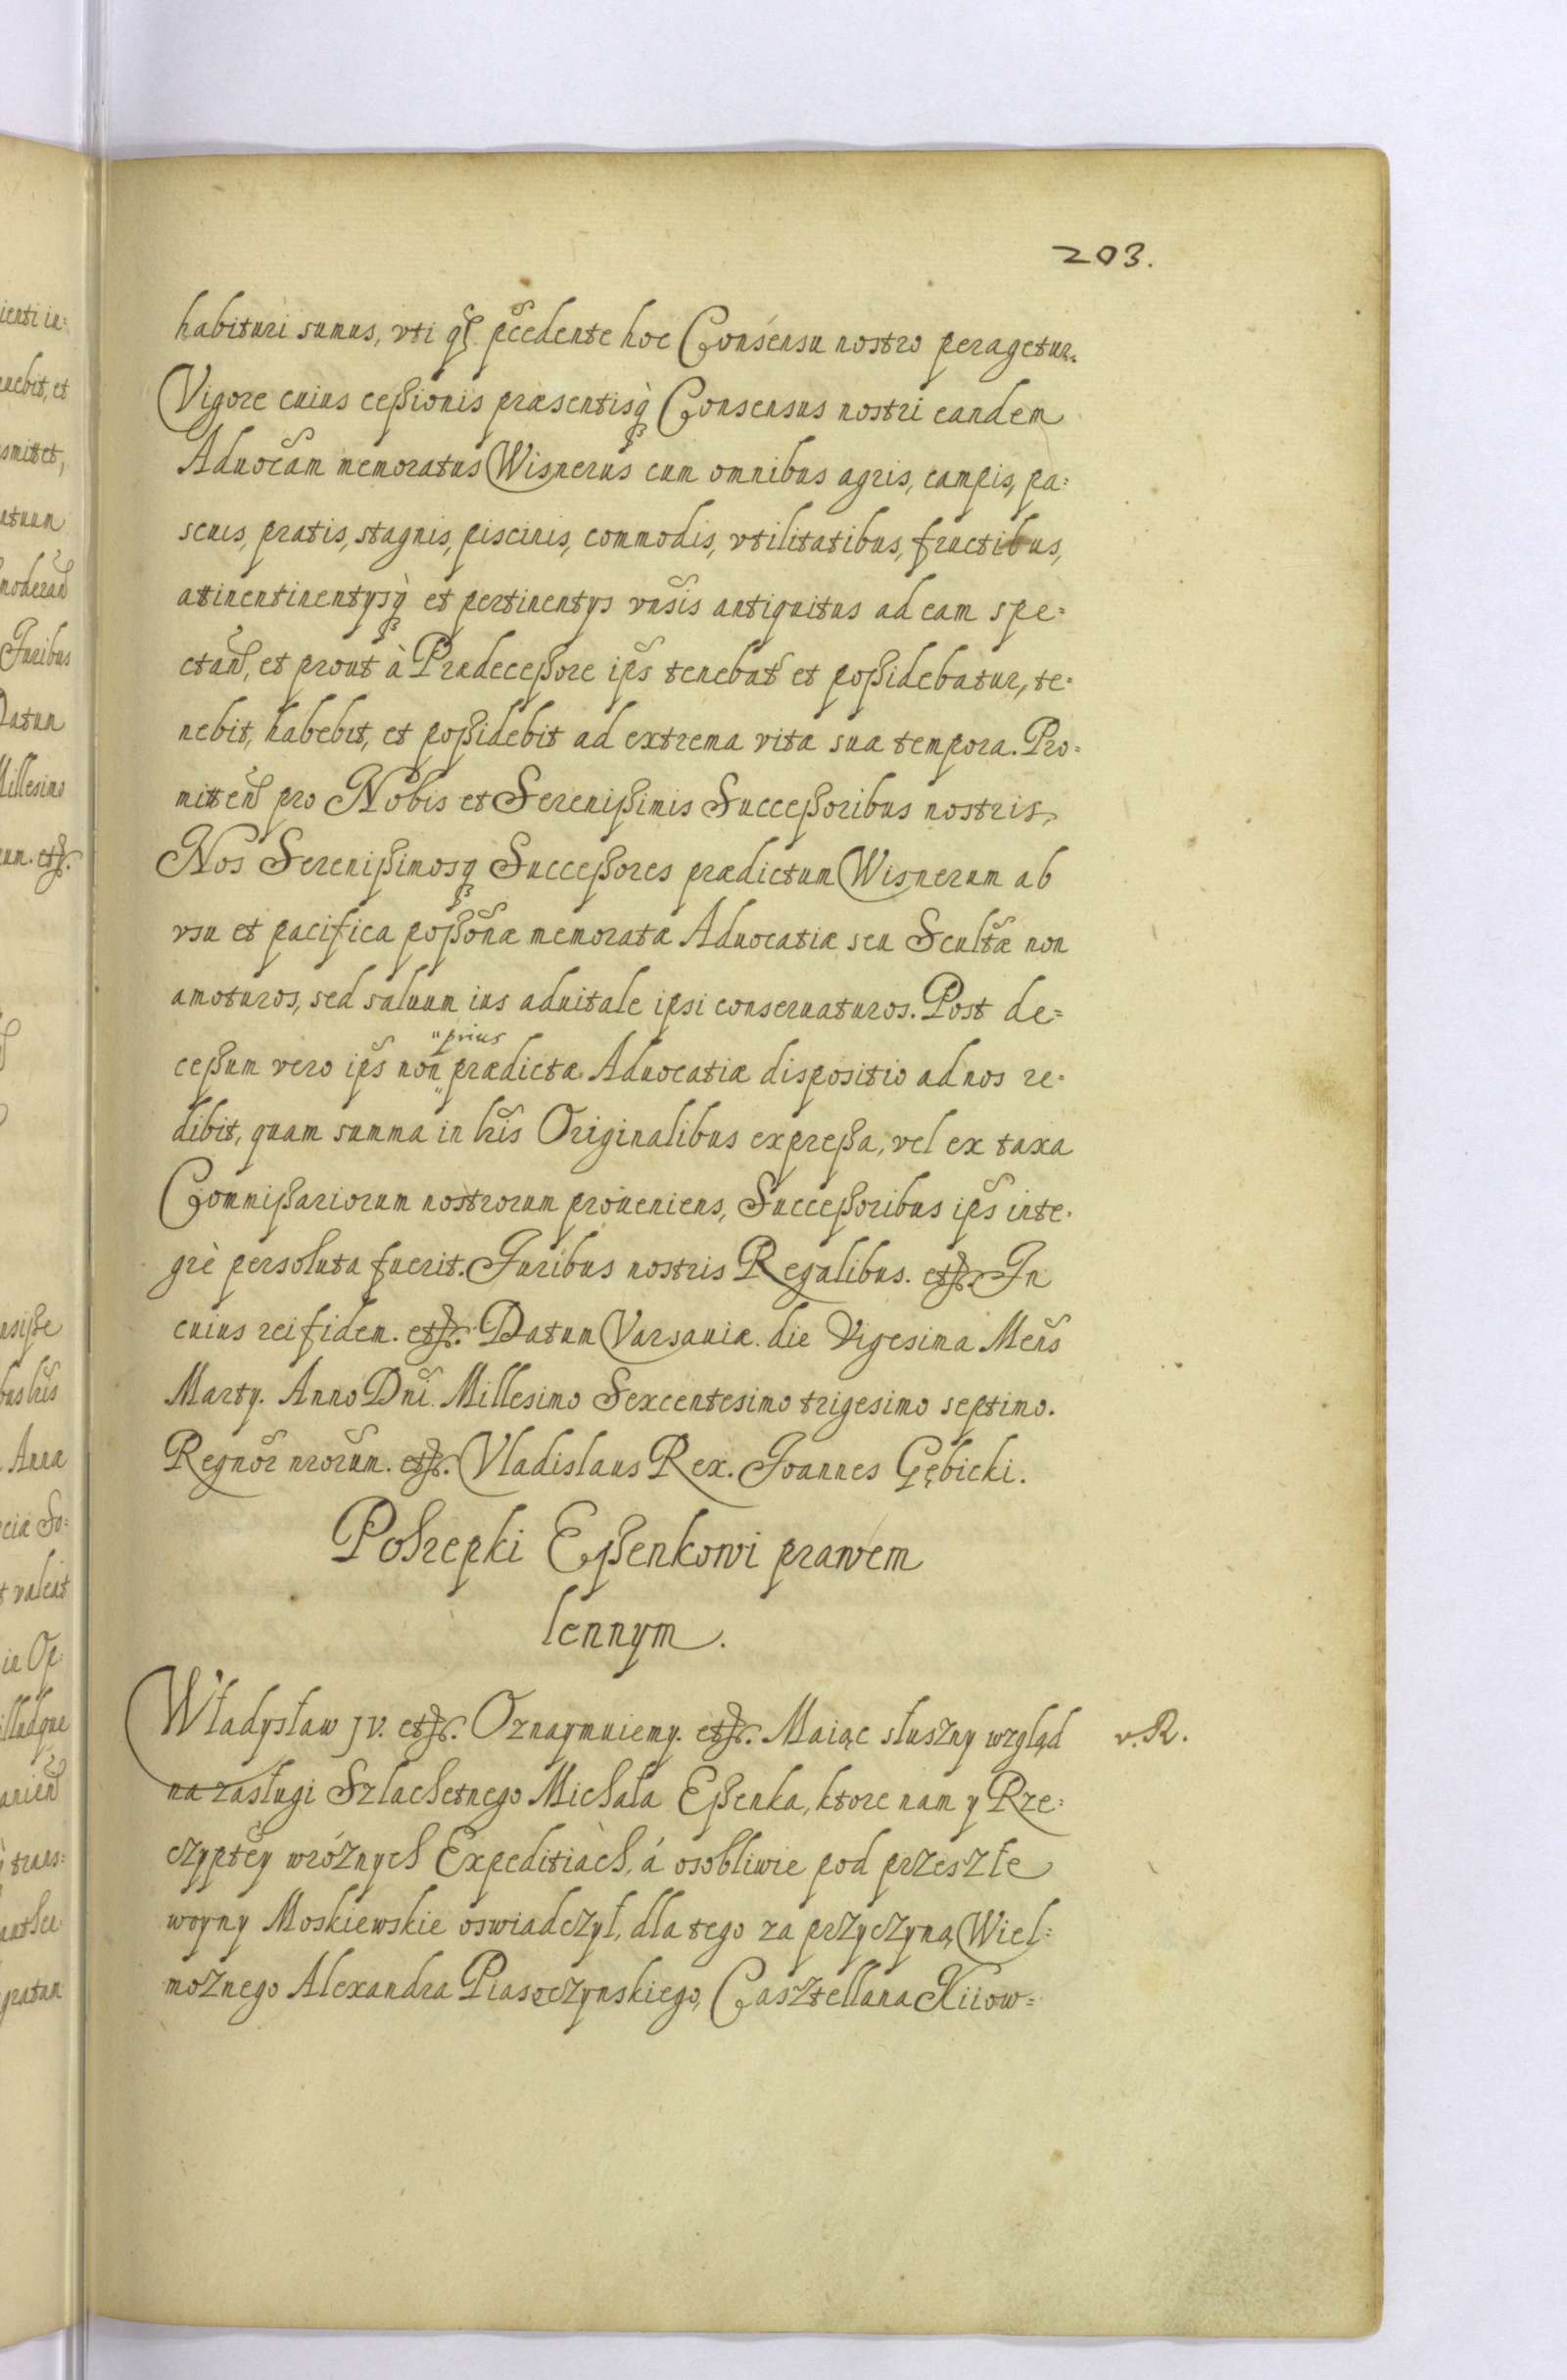 203.
habituri sumus, vti qꝭ p̃cedente hoc Consensu nostro peragetur.
Vigore cuius ceßionis præsentisq̀ Consensus nostri eandem
Aduoc̃am memoratus Wisnerus cum omnibus agris, campis, pa=
scuis, pratis, stagnis, piscinis, commodis, vtilitatibus, fructibus,
attinentinentysq̀ et pertinentys vñsis antiquitus ad eam spe=
ctañ, et prout à Prædeceßore ip̃s tenebat̃ et poßidebatur, te=
nebit, habebit, et poßidebit ad extrema vitæ suæ tempora. Pro=
mitteñ pro Nobis et Serenißimis Succeßoribus nostris,
Nos Serenißimosq Succeßores prædictum Wisnerum ab
vsu et pacifica poßõnæ memoratæ Aduocatiæ seu Scult̃æ non
amoturos, sed saluum ius aduitale ipsi conseruaturos. Post de=
"prius
ceßum vero ip̃s non" prædictæ Aduocatiæ dispositio ad nos re=
dibit, quam summa in lr̃is Originalibus expreßa, vel ex taxa
Commißariorum nostrorum proueniens, Succeßoribus ip̃s inte=
grè persoluta fuerit. Juribus nostris Regalibus. etc. In
cuius rei fidem. etc. Datum Varsauiæ. die Vigesima Meñs
Martÿ. Anno Dñi. Millesimo Sexcentesimo trigesimo septimo.
Regnor̃ nrõrum. etc. Vladislaus Rex. Joannes Gębicki.
Pohrepki Eßenkowi prawem
lennym.
Władysław jv. etc. Oznaymuiemy. etc. Maiąc słuszny wzgląd
v. R.
na zasługi Szlachetnego Michała Eßenka, ktore nam y Rze=
czyptẽy wróżnych Expeditiàch, á osobliwie pod przeszłe
woyny Moskiewskie oswiadczył, dla tego za przyczyną Wiel=
możnego Alexandra Piasoczynskiego, Casztellana Kiiow=